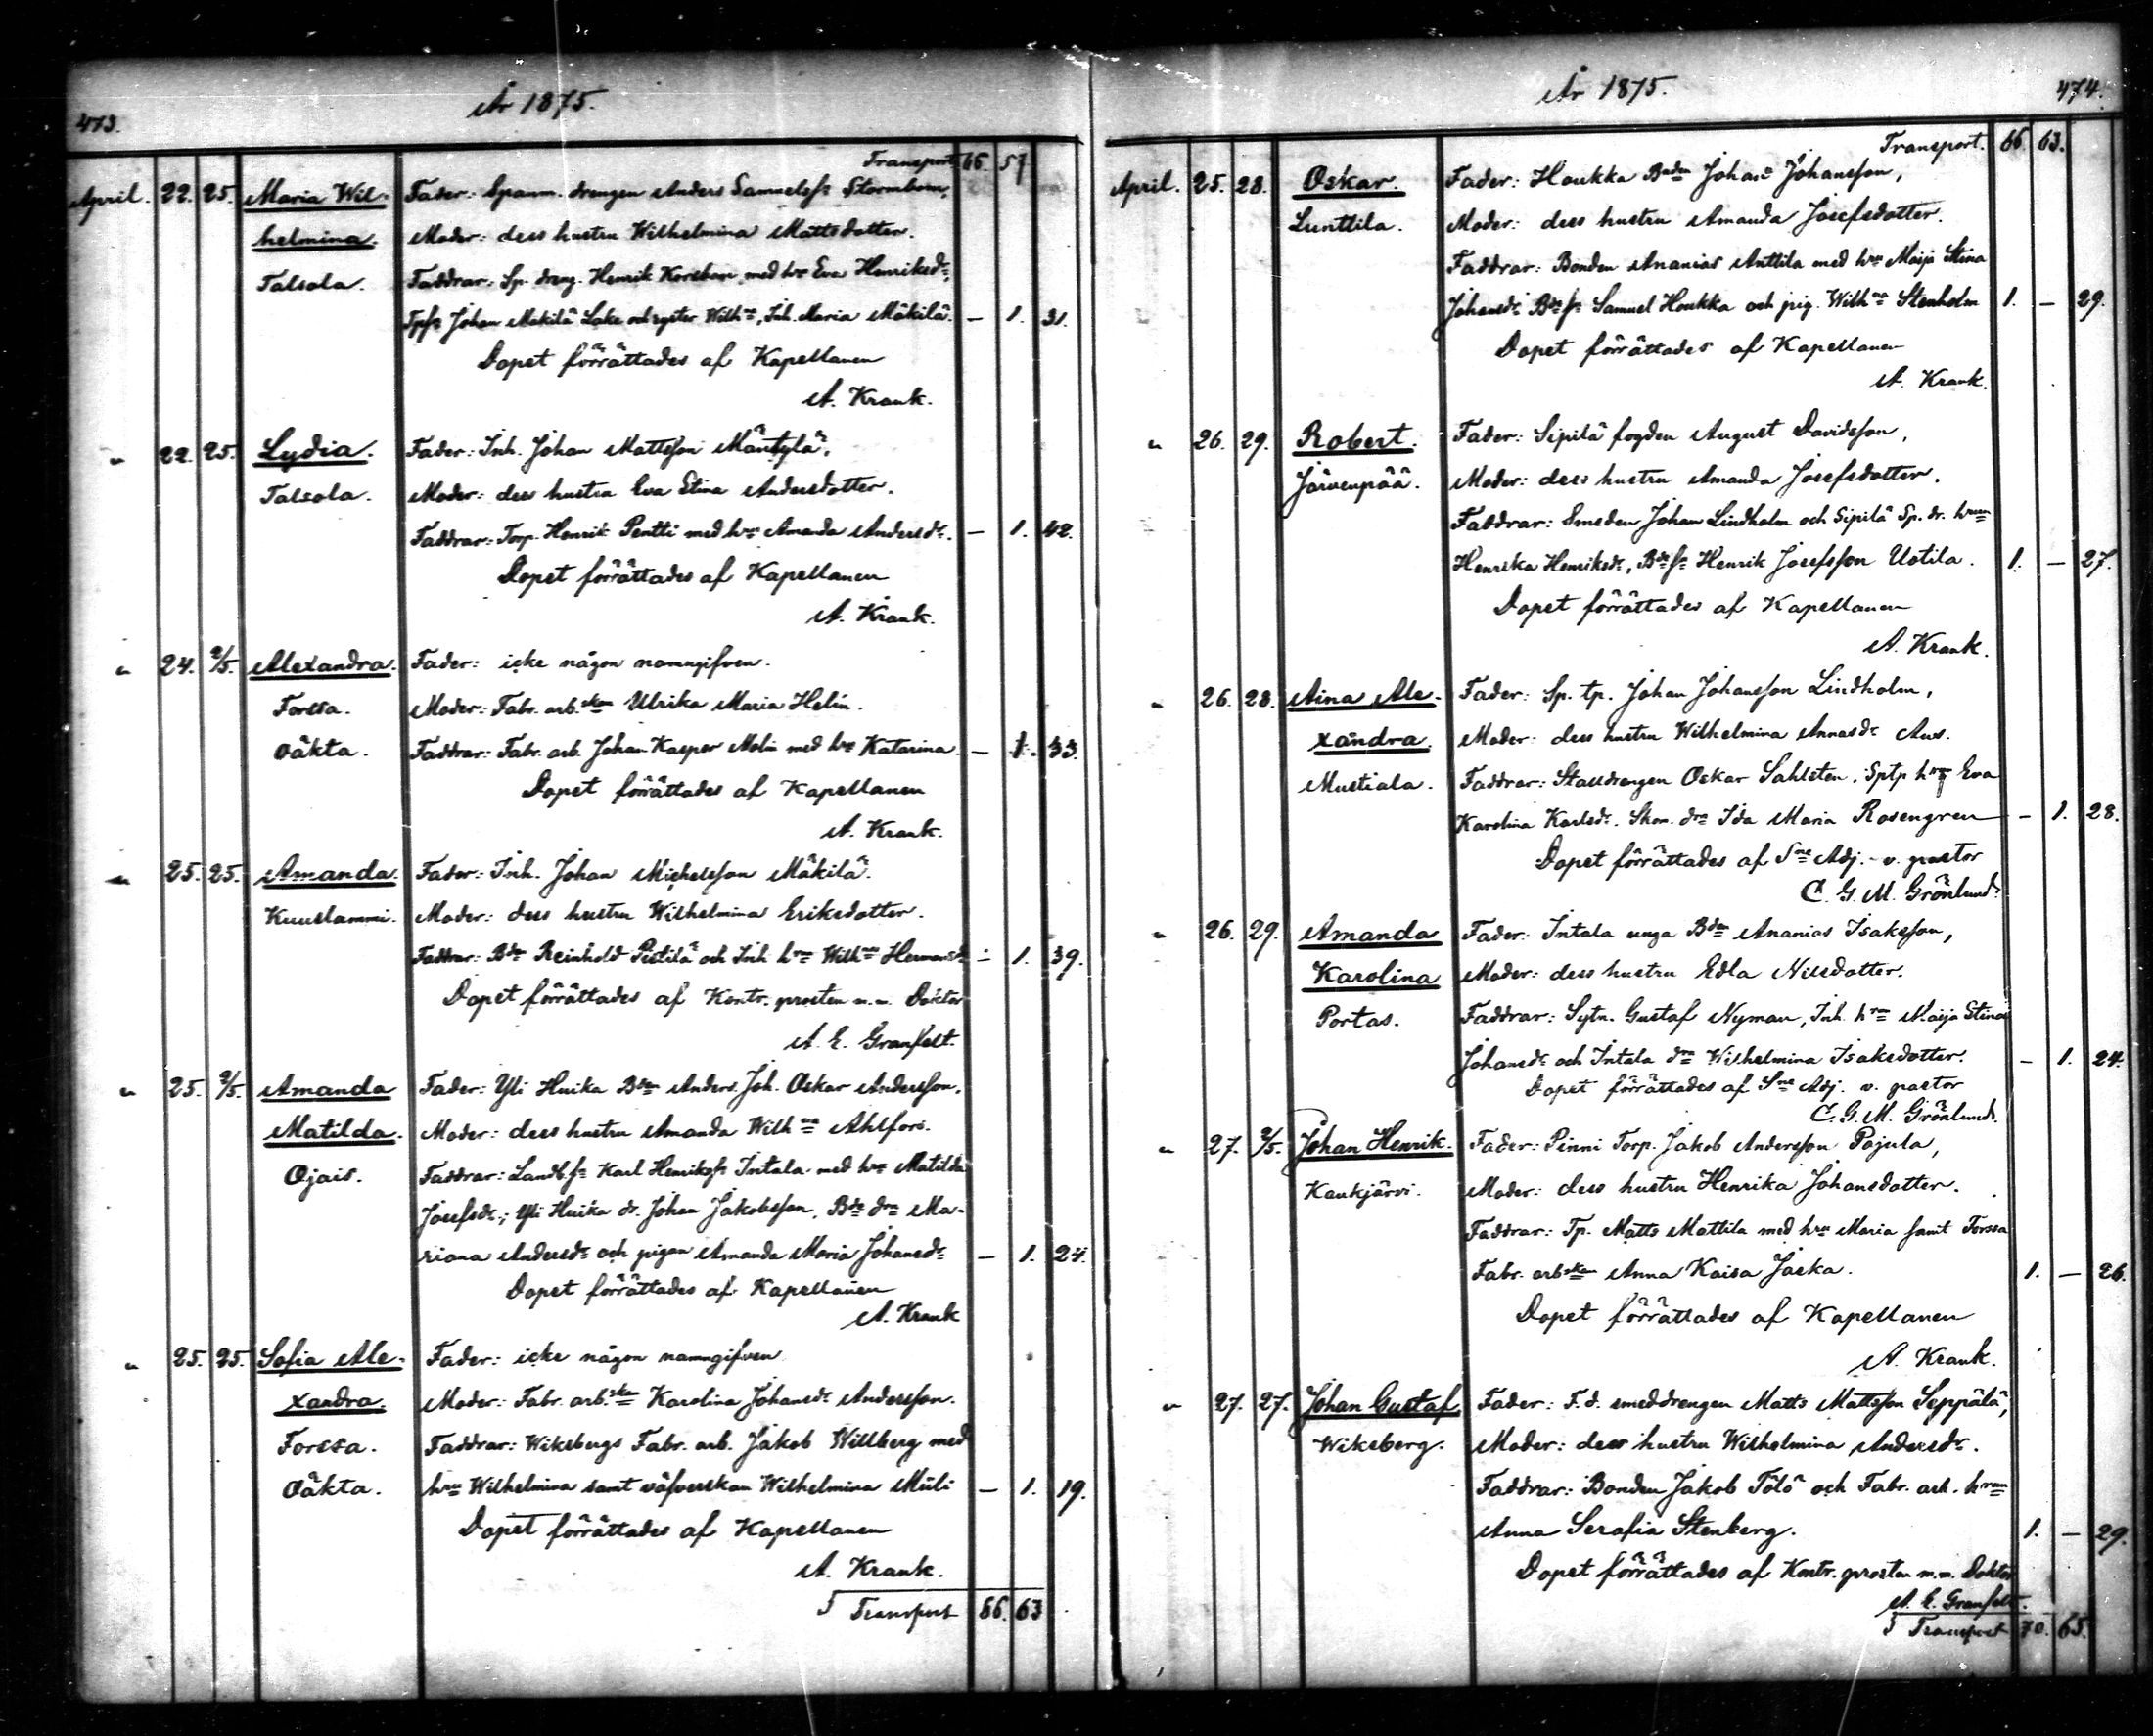 473.
År 1875.
Transport. 66. 57
April. 22. 25. Maria Wil- Fader: Spanm. drengen Anders Samuelss: Stormbom,
helmina. Moder: dess hustru Wilhelmina Mattsdotter.
Talsola. Faddrar: Sp. dreng. Henrik med hru Eva Henriksdr,
Johan Mäkilä och syster Wilhna, Inh. Maria Mäkilä. — 1. 31.
Dopet förrättades af Kapellanen
A. Krank.
" 22. 25. Lydia. Fader: Inh. Johan Mattsson Mäntylä,
Talsola. Moder: dess hustru Eva Stina Andersdotter.
Faddrar: Torp. Henrik Pentti med hru Amanda Andersdr. — 1. 42.
Dopet förrättades af Kapellanen
A. Krank.
" 24. 2/5. Alexandra. Fader: icke någon namngifven.
Forssa. Moder: Fabr. arb.skan Ulrika Maria Helin.
oäkta. Faddrar: Fabr. arb. Johan Kasper Molin med hru Katarina. — 1. 33.
Dopet förrättades af Kapellanen
A. Krank.
" 25. 25. Amanda Fader: Inh. Johan Michelsson Mäkilä.
Kuuslammi. Moder: dess hustru Wilhelmina Eriksdotter.
Faddrar: Bdn Reinhold och Inh. hru Wilhna Hermansdr — 1. 39.
Dopet förrättades af Kontr. prosten m.m. Doktor
A. E. Granfelt.
" 25. 2/5. Amanda Fader: Yli Huika Bden Anders Joh. Oskar Andersson.
Matilda. Moder: dess hustru Amanda Wilhna Ahlfors.
Ojais. Faddrar: Landb. sn Karl Henrikss: Intala med hru Matilda
Josefsdr; Yli Huika dr. Johan Jakobsson, Bde drn Ma-
riana Andersdr och pigan Amanda Maria Johansdr — 1. 24.
Dopet förrättades af Kapellanen
A. Krank
" 25. 25. Sofia Ale- Fader: icke någon namngifven
xandra. Moder: Fabr. arb.skan Karolina Johansdr Andersson.
Forssa. Faddrar: Wiksbergs Fabr. arb. Jakob Willberg med
Oäkta. hru Wilhelmina samt väfverskan Wilhelmina — 1. 19.
Dopet förrättades af Kapellanen
A. Krank.
Transport 66. 63
År 1875.
474.
Transport. 66. 63.
April. 25. 28. Oskar. Fader: Houkka Bnden Johan Johansson,
Lunttila. Moder: dess hustru Amanda Josefsdotter.
Faddrar: Bonden Ananias Anttila med hru Maija Stina
Johansdr Bde sn Samuel Houkka och pig. Wilhna Stenholm 1. — 29.
Dopet förrättades af Kapellanen
A. Krank.
" 26. 29. Robert. Fader: Sipilä fogden August Davidsson,
Järvenpää. Moder: dess hustru Amanda Josefsdotter.
Faddrar: Smeden Johan Lindholm och Sipilä Sp. dr. hrun
Henrika Henriksdr, Bde sn Henrik Josefsson Uotila. 1. — 27.
Dopet förrättades af Kapellanen
A. Krank.
" 26. 28. Aina Ale- Fader: Sp. tp. Johan Johansson Lindholm,
xandra. Moder: dess hustru Wilhelmina Annasdr
Mustiala. Faddrar: Stalldrengen Oskar Sahlsten, Sptp hru Eva
Karolina Karlsdr. Skom. drn Ida Maria Rosengren — 1. 28.
Dopet förrättades af Sne Adj. - v. pastor
C. G. M. Grönlund.
" 26. 29. Amanda Fader: Intala unga Bden Ananias Isaksson,
Karolina Moder: dess hustru Edla Nilsdotter.
Portas. Faddrar: Sytn. Gustaf Nyman, Inh. hru Maija Stina
Johansdr och Intala drn Wilhelmina Isaksdotter. — 1. 24.
Dopet förrättades af Sne Adj. v. pastor
C. G. M. Grönlund.
" 27. 2/5. Johan Henrik. Fader: Pinni Torp. Jakob Andersson Pajula,
Kaukjärvi. Moder: dess hustru Henrika Johansdotter.
Faddrar: Tp. Matts Mattila med hru Maria samt Forssa
Fabr. arbskan Anna Kaisa Jaska. 1. — 26.
Dopet förrättades af Kapellanen
A. Krank.
" 27. 27. Johan Gustaf Fader: F.d. smeddrengen Matts Mattsson Seppälä,
Wiksberg. Moder: dess hustru Wilhelmina Andersdr.
Faddrar: Bonden Jakob Tölö och Fabr. arb. hrun
Anna Serafia Stenberg. 1. — 29.
Dopet förrättades af Kontr. prosten m.m. Doktor
A. E. Granfelt.
Transport 70. 65.